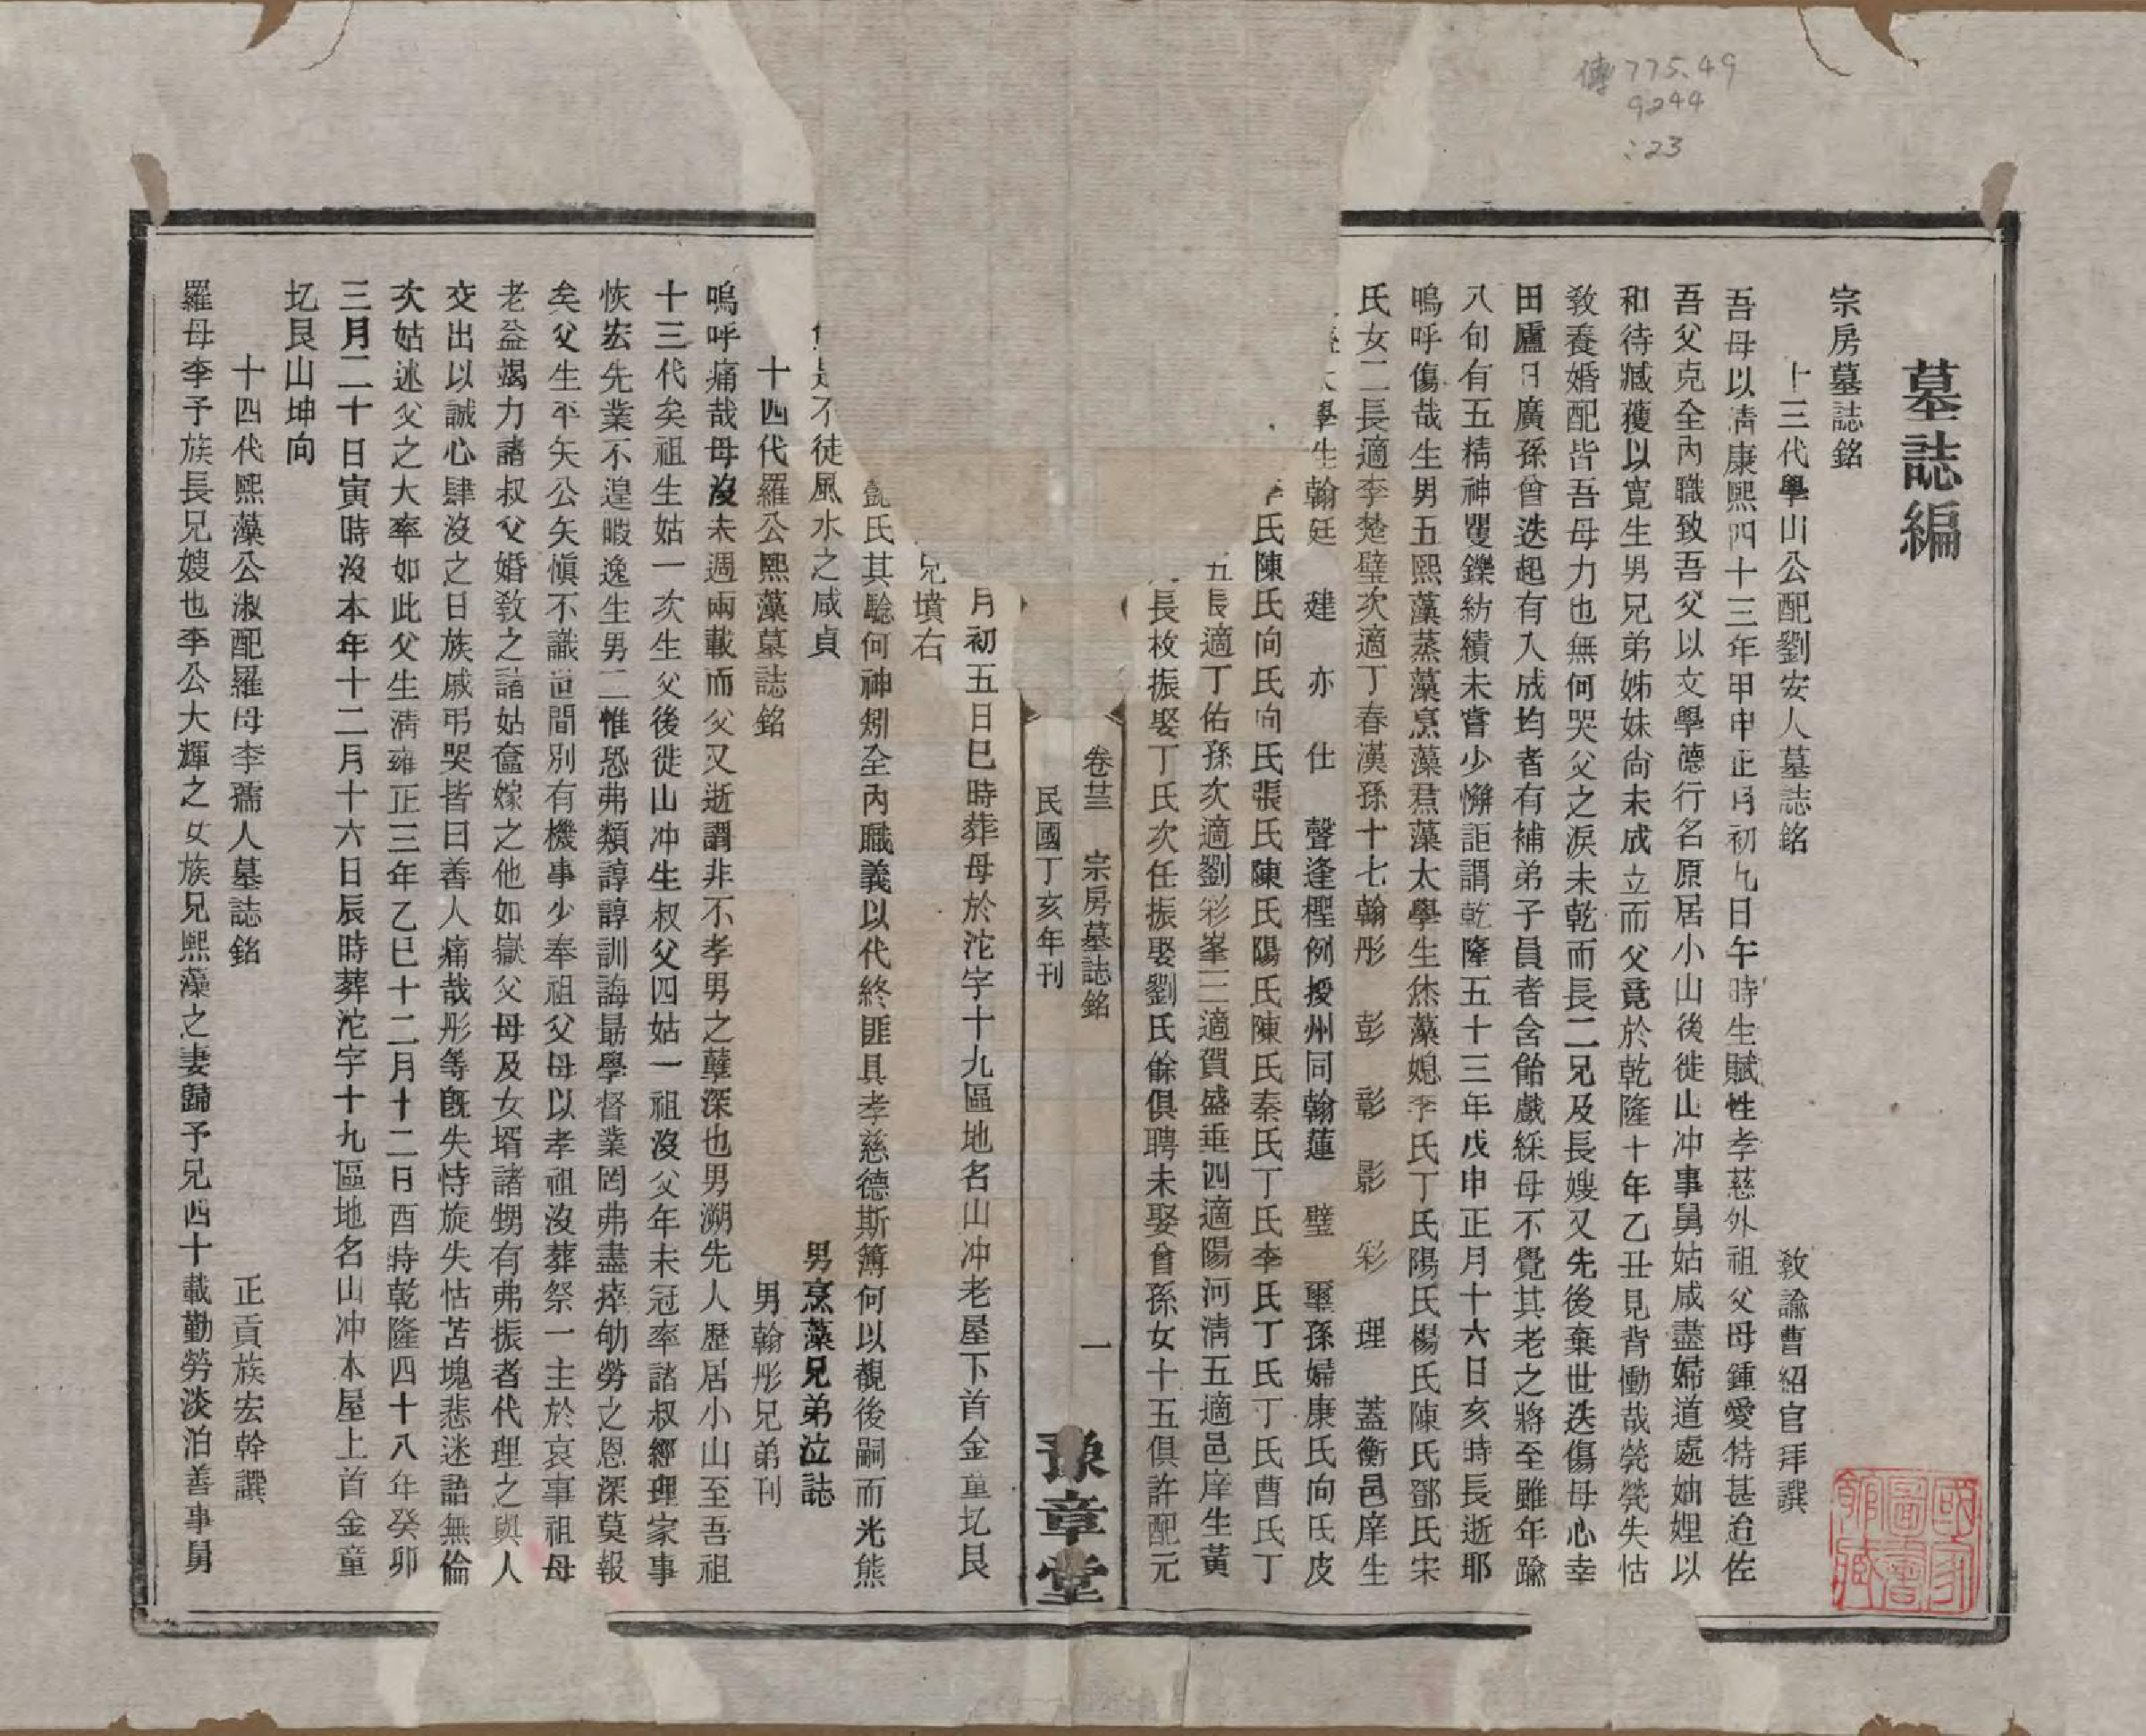 傳775.49
9244
:23
墓誌編
宗房墓誌銘
十三代學山公配劉安人墓誌銘 敎諭曹紹官拜譔
吾母以淸康熙四十三年甲申正月初九日午時生賦性孝慈外祖父母鍾愛特甚迨佐
吾父克全內職致吾父以文學德行名原居小山後徙山冲事舅姑咸盡婦道處妯娌以
和待臧獲以寬生男兄弟姊妹尙未成立而父竟於乾隆十年乙丑見背慟哉煢煢失怙
敎養婚配皆吾母力也無何哭父之淚未乾而長二兄及長嫂又先後棄世迭傷母心幸
田廬日廣孫曾迭起有入成均者有補弟子員者含飴戲綵母不覺其老之將至雖年踰
八旬有五精神矍鑠紡績未嘗少懈詎謂乾隆五十三年戊申正月十六日亥時長逝耶
嗚呼傷哉生男五熙藻蒸藻烹藻焄藻太學生烋藻媳李氏丁氏陽氏楊氏陳氏鄧氏宋
氏女二長適李楚璧次適丁春漢孫十七翰彤 彭 彰 影 彩 理 蓋衡邑庠生
學生翰廷 建 亦 仕 聲逢檉例授州同翰蓮 璧 壐孫婦康氏向氏皮
氏陳氏向氏向氏張氏陳氏陽氏陳氏秦氏丁氏李氏丁氏丁氏曹氏丁
五長適丁佑孫次適劉彩峯三適賀盛垂四適陽河淸五適邑庠生黃
長枚振娶丁氏次任振娶劉氏餘俱聘未娶曾孫女十五俱許配元
卷廿三 宗房墓誌銘 一
民國丁亥年刊 豫章堂
月初五日巳時葬母於沱字十九區地名山冲老屋下首金童圪艮
兄墳右
氏其騐何神矧全內職義以代終匪具孝慈德斯簿何以覩後嗣而光熊
不徒風水之咸貞 男烹藻兄弟泣誌
十四代羅公熙藻墓誌銘 男翰彤兄弟刊
嗚呼痛哉母沒未週兩載而父又逝謂非不孝男之孽深也男溯先人歷居小山至吾祖
十三代矣祖生姑一次生父後徙山冲生叔父四姑一祖沒父年未冠率諸叔經理家事
恢宏先業不遑暇逸生男二惟恐弗類諄諄訓誨朂學督業罔弗盡瘁劬勞之恩深莫報
矣父生平矢公矢愼不識世間別有機事少奉祖父母以孝祖沒葬祭一主於哀事祖母
老益竭力諸叔父婚敎之諸姑奩嫁之他如嶽父母及女壻諸甥有弗振者代理之與人
交出以誠心肆沒之日族戚弔哭皆曰善人痛哉彤等旣失恃旋失怙苫塊悲迷語無倫
次姑述父之大率如此父生淸雍正三年乙巳十二月十二日酉時乾隆四十八年癸卯
三月二十日寅時沒本年十二月十六日辰時葬沱字十九區地名山冲本屋上首金童
圪艮山坤向
十四代熙藻公淑配羅母李孺人墓誌銘 正貢族宏幹譔
羅母李予族長兄嫂也李公大輝之女族兄熙藻之妻歸予兄四十載勤勞淡泊善事舅
國家圖書館藏